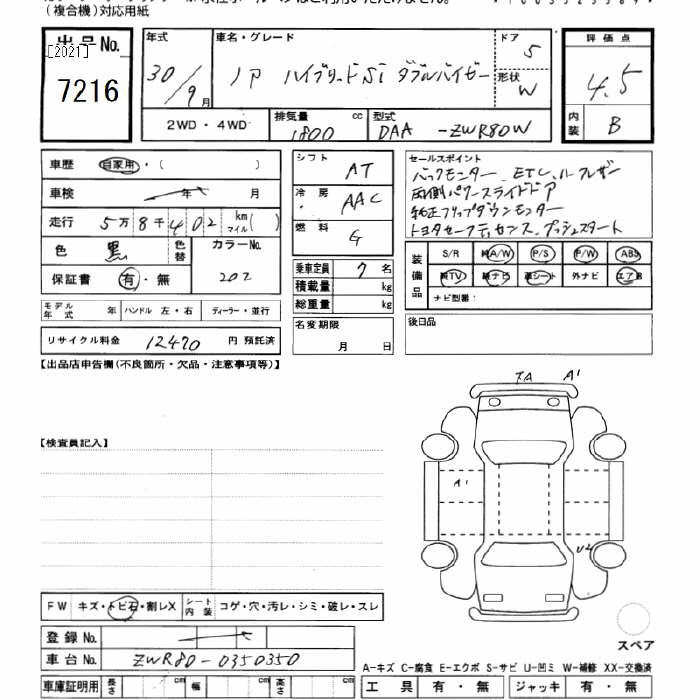 (複合機)対応用紙
出品No.
[2021]
7216
年式 30/9月
車名・グレード ノア ハイブリッドSi ダブルバイビー
ドア 5
形状 W
評価点
4.5
内装 B
2WD・4WD
排気量 1800 cc
型式 DAA-ZWR80W
車歴 自家用・( )
車検 年 月
走行 5万8千402 km マイル( )
色 黒 色替
カラーNo. 202
保証書 有・無
モデル年式 年 ハンドル 左・右 ディーラー・並行
リサイクル料金 12470 円 預託済
シフト AT
冷房 AAC
燃料 G
乗車定員 7名
積載量 kg
総重量 kg
名変期限
月 日
セールスポイント
バックモニター、ETC、ルーフレザー
両側パワースライドドア
純正フリップダウンモニター
トヨタセーフティセンス、プッシュスタート
装備品 S/R 純A/W P/S P/W ABS
純TV 純ナビ 革シート 外ナビ エアB
ナビ型番:
後日品
【出品店申告欄(不良箇所・欠品・注意事項等)】
【検査員記入】
A1
A1
U2
FW キズ・トビ石・割レX シート内装 コゲ・穴・汚レ・シミ・破レ・スレ
登録No.
車台No. ZWR80-0350350
車庫証明用 長さ cm 幅 cm 高さ cm
スペア
A-キズ C-腐食 E-エクボ S-サビ U-凹ミ W-補修 XX-交換済
工具 有・無 ジャッキ 有・無